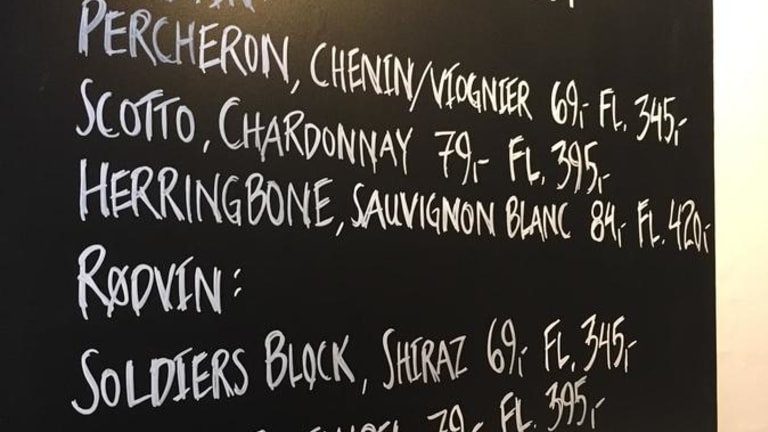 PERCHERON, CHENIN/VIOGNIER 69,- FL. 345,-
SCOTTO, CHARDONNAY 79,- FL. 395,-
HERRINGBONE, SAUVIGNON BLANC 84,- FL. 420,-
RØDVIN:
SOLDIERS BLOCK, SHIRAZ 69,- FL. 345,-
79,- FL. 395,-